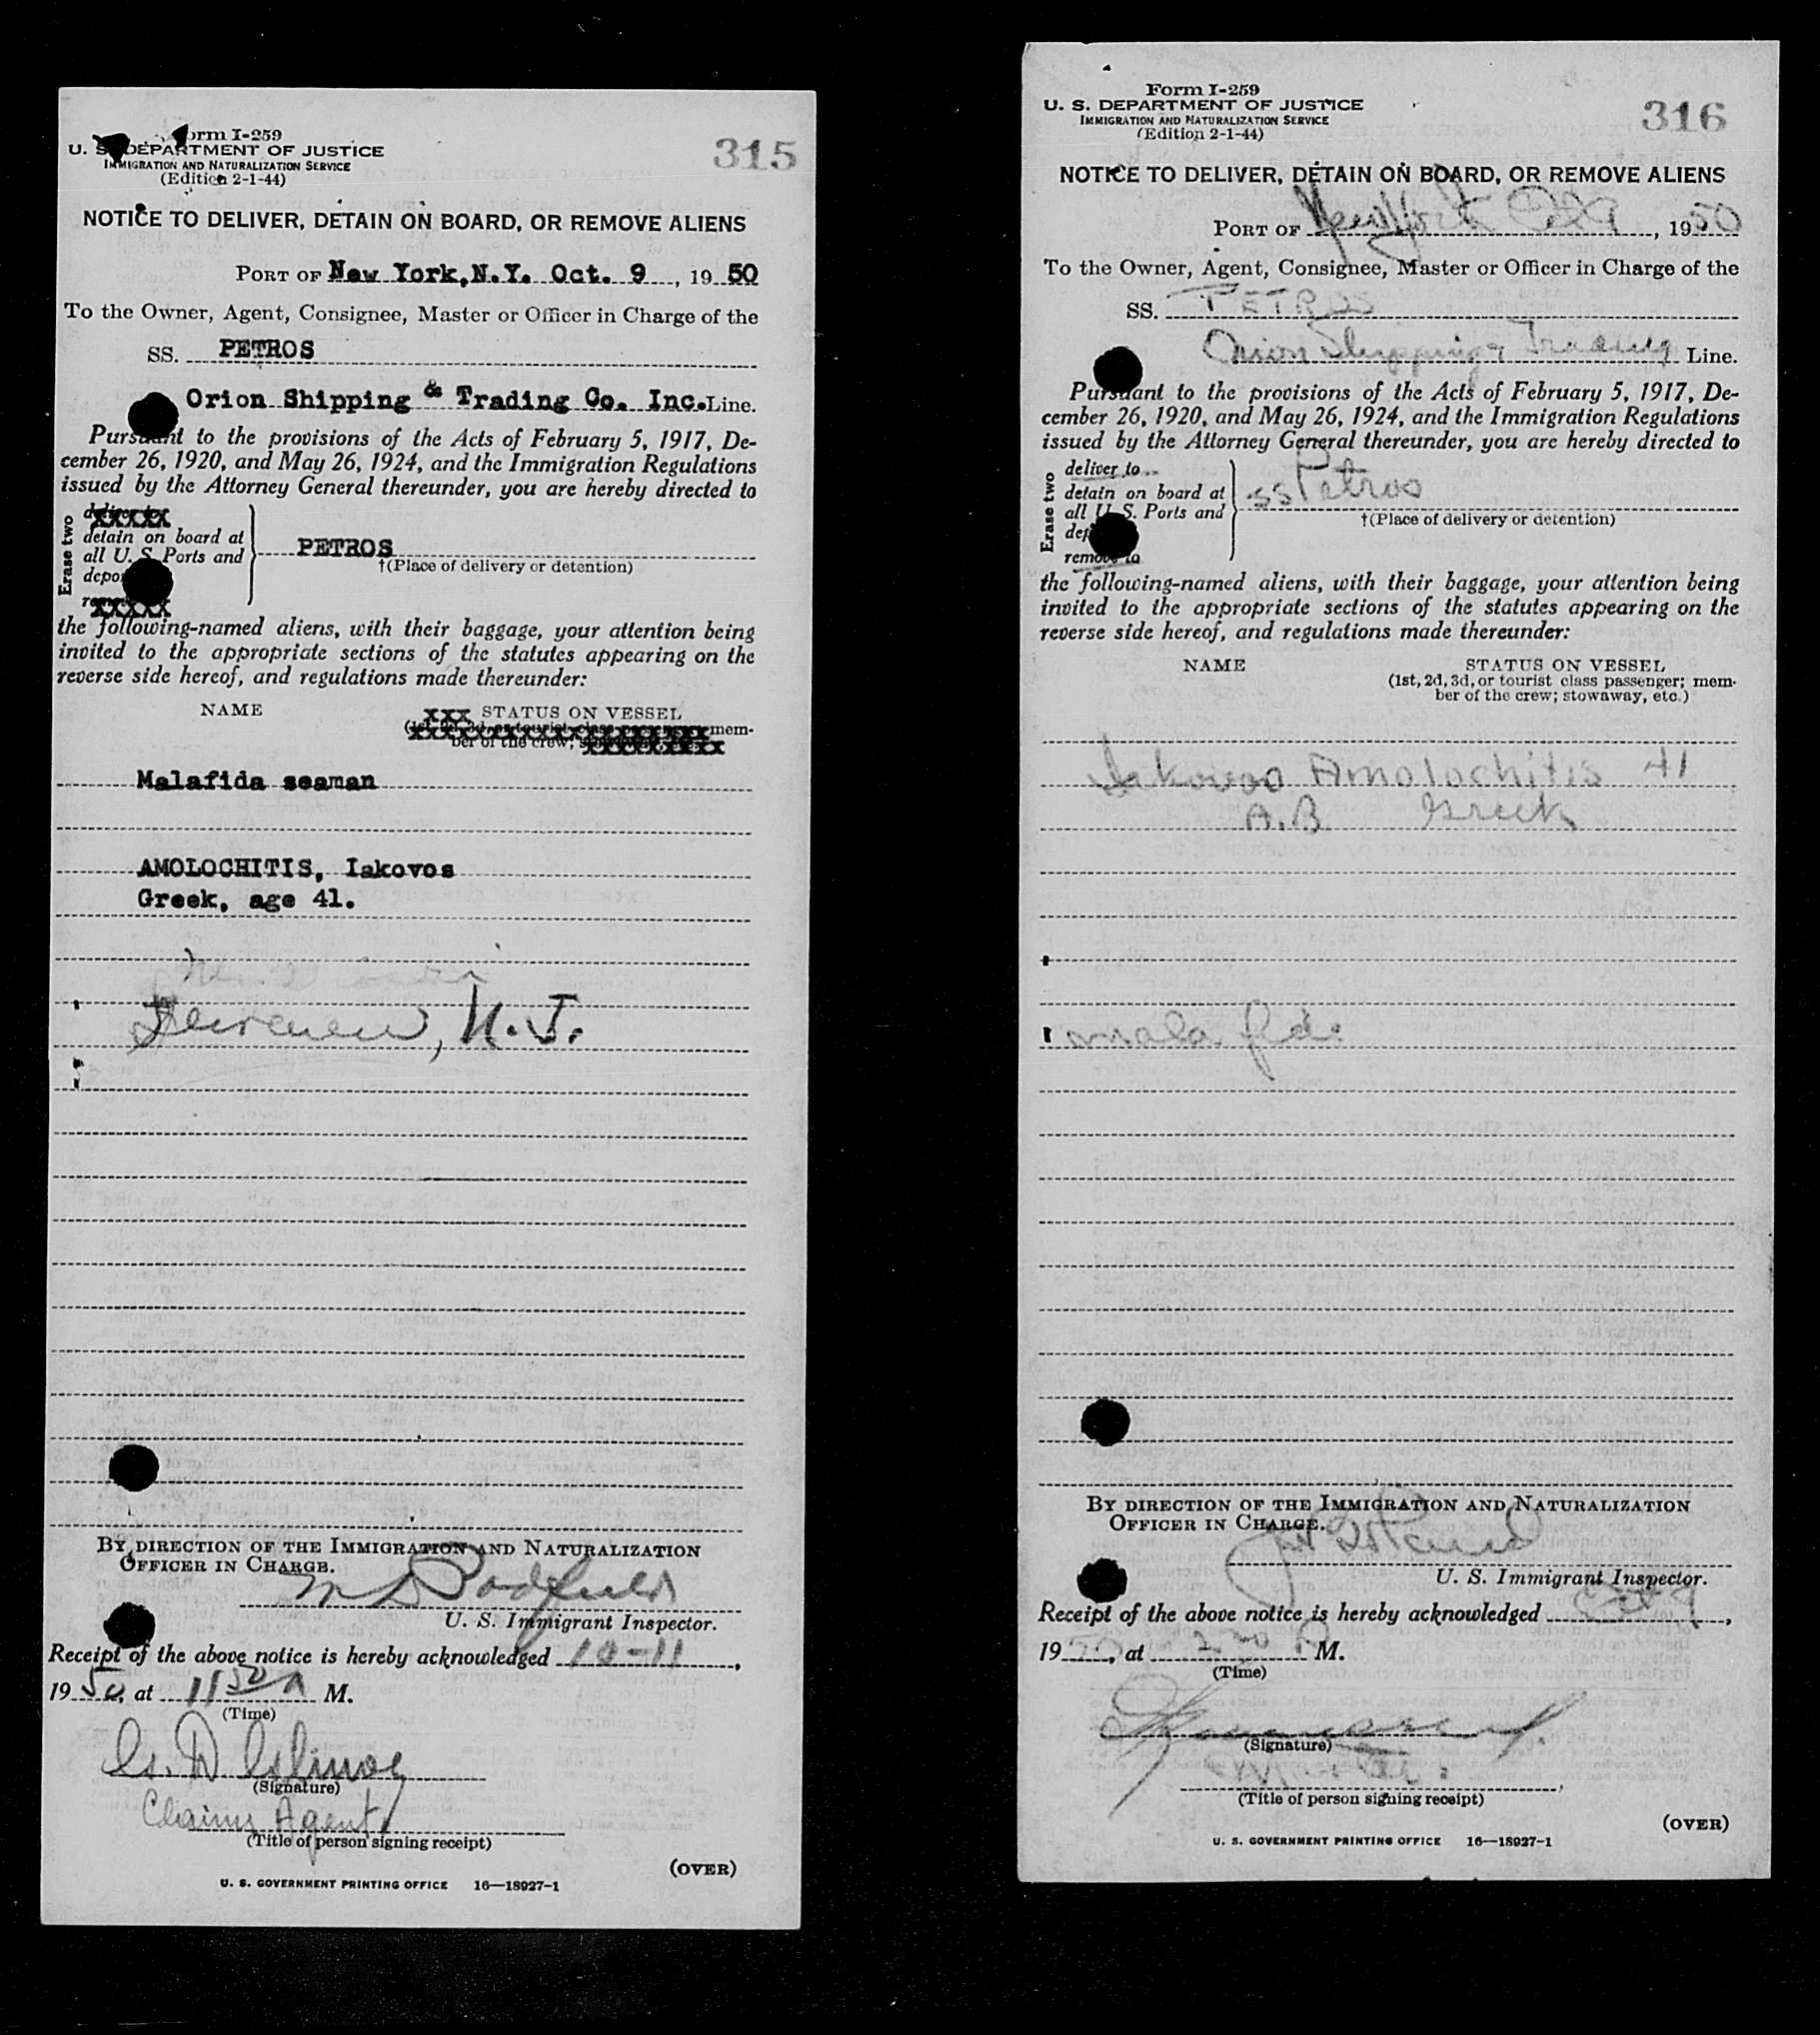 Form I-259
U. S. DEPARTMENT OF JUSTICE
IMMIGRATION AND NATURALIZATION SERVICE
(Edition 2-1-44)
315
NOTICE TO DELIVER, DETAIN ON BOARD, OR REMOVE ALIENS
PORT OF New York, N.Y. Oct. 9, 19 50
To the Owner, Agent, Consignee, Master or Officer in Charge of the
SS. PETROS
Orion Shipping & Trading Co. Inc. Line.
Pursuant to the provisions of the Acts of February 5, 1917, De-
cember 26, 1920, and May 26, 1924, and the Immigration Regulations
issued by the Attorney General thereunder, you are hereby directed to
Erase two
deliver to
detain on board at
all U. S. Ports and
depo
PETROS
†(Place of delivery or detention)
the following-named aliens, with their baggage, your attention being
invited to the appropriate sections of the statutes appearing on the
reverse side hereof, and regulations made thereunder:
NAME
xxx STATUS ON VESSEL
(1st, 2d, 3d, or tourist class passenger; mem-
ber of the crew;
Malafida seaman
AMOLOCHITIS, Iakovos
Greek, age 41.
N. J.
BY DIRECTION OF THE IMMIGRATION AND NATURALIZATION
OFFICER IN CHARGE.
U. S. Immigrant Inspector.
Receipt of the above notice is hereby acknowledged 10-11,
19 50, at 11 50 A M.
(Time)
(Signature)
Claims Agent
(Title of person signing receipt)
(OVER)
U. S. GOVERNMENT PRINTING OFFICE 16—18927-1
Form I-259
U. S. DEPARTMENT OF JUSTICE
IMMIGRATION AND NATURALIZATION SERVICE
(Edition 2-1-44)
316
NOTICE TO DELIVER, DETAIN ON BOARD, OR REMOVE ALIENS
PORT OF New York Oct 9, 19 50
To the Owner, Agent, Consignee, Master or Officer in Charge of the
SS. PETROS
Orion Shipping & Trading Line.
Pursuant to the provisions of the Acts of February 5, 1917, De-
cember 26, 1920, and May 26, 1924, and the Immigration Regulations
issued by the Attorney General thereunder, you are hereby directed to
Erase two
deliver to
detain on board at
all U. S. Ports and
dep
remove to
SS Petros
†(Place of delivery or detention)
the following-named aliens, with their baggage, your attention being
invited to the appropriate sections of the statutes appearing on the
reverse side hereof, and regulations made thereunder:
NAME
STATUS ON VESSEL
(1st, 2d, 3d, or tourist class passenger; mem-
ber of the crew; stowaway, etc.)
Iakovos Amolochitis 41
A.B Greek
mala fide
BY DIRECTION OF THE IMMIGRATION AND NATURALIZATION
OFFICER IN CHARGE.
U. S. Immigrant Inspector.
Receipt of the above notice is hereby acknowledged Oct 9,
19 50, at 2 30 M.
(Time)
(Signature)
Master
(Title of person signing receipt)
(OVER)
U. S. GOVERNMENT PRINTING OFFICE 16—18927-1